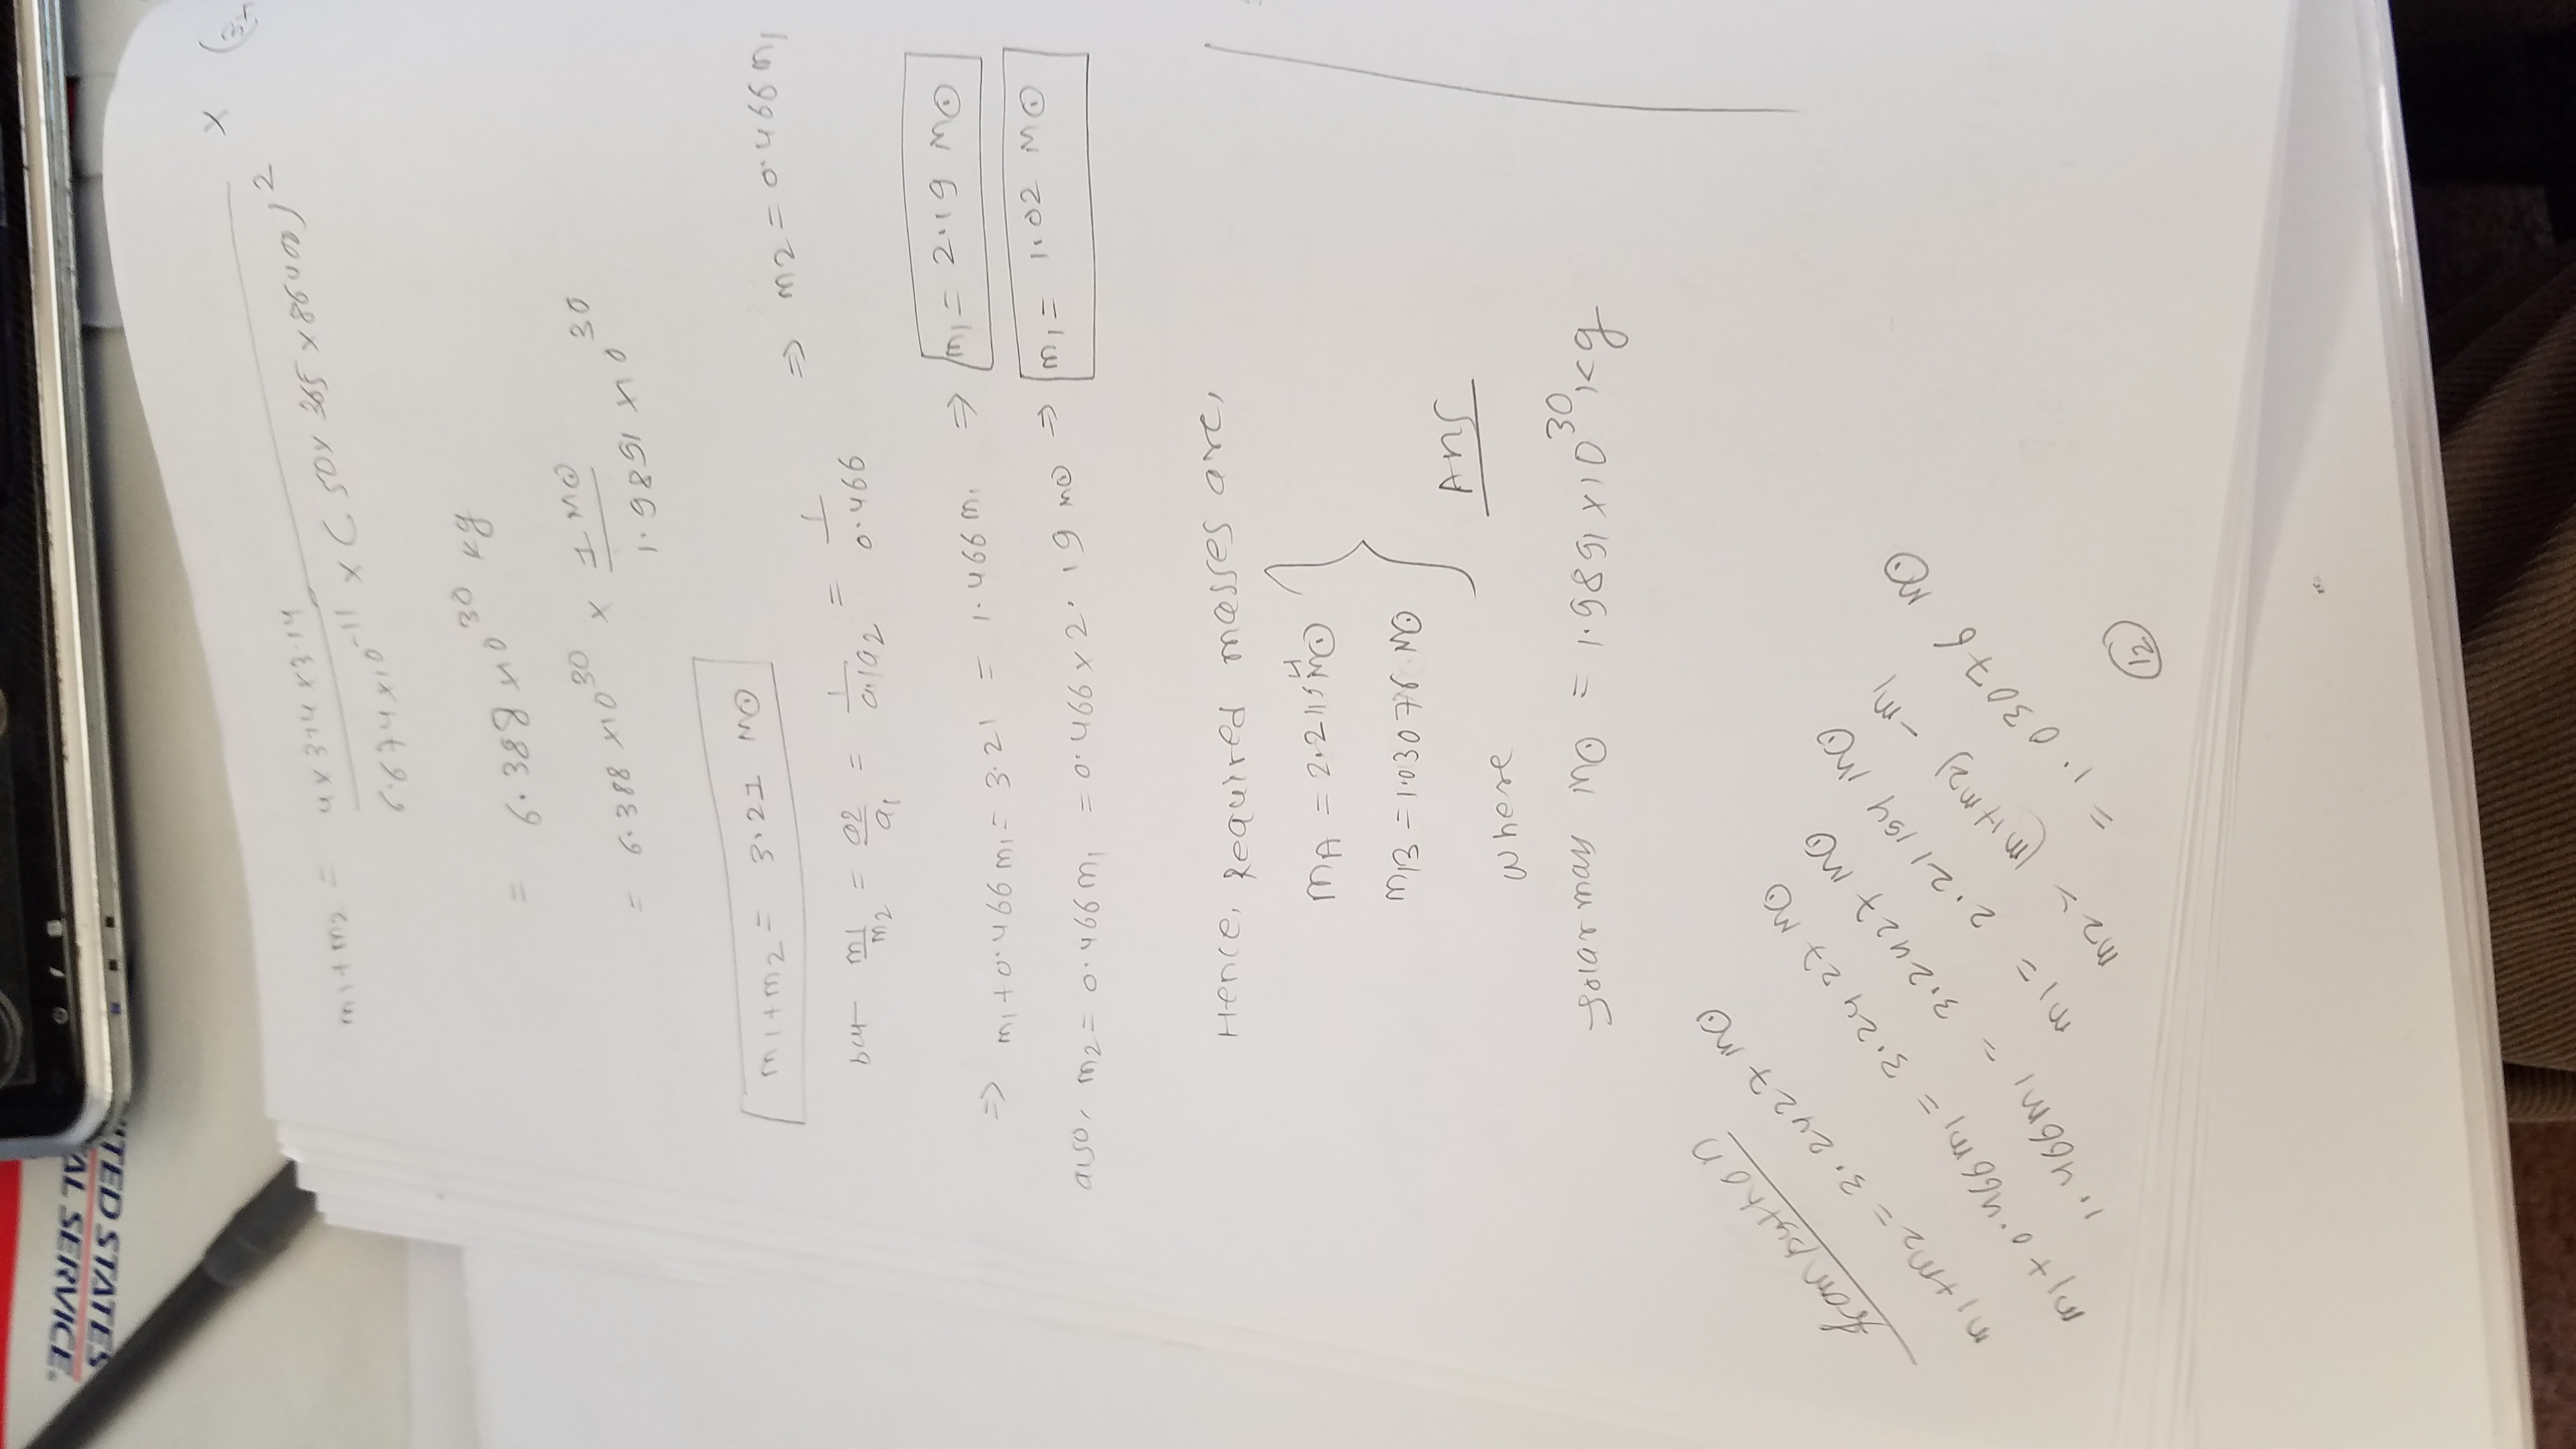 UNITED STATES
AL SERVICE®
m1+m2 = 4×3.14×3.14 / 6.674×10^-11 × (50×365×86400)^2 ×
= 6.388×10^30 kg
= 6.388×10^30 × 1 M☉ / 1.9891×10^30
m1+m2 = 3.21 M☉
but m1/m2 = a2/a1 = 1/a1/a2 = 1/0.466 ⇒ m2 = 0.466 m1
⇒ m1+0.466 m1 = 3.21 = 1.466 m1 ⇒ m1 = 2.19 M☉
also, m2 = 0.466 m1 = 0.466×2.19 M☉ ⇒ m1 = 1.02 M☉
Hence, Required masses are,
mA = M☉
mB = 1.03076 M☉
Ans
where
solar mass M☉ = 1.9891×10^30 kg
from python
m1+m2 = 3.2427 M☉
m1+0.466m1 = 3.2427 M☉
1.466m1 = 3.2427 M☉
m1 = 2.21194 M☉
m2 = (m1+m2) - m1
= 1.03076 M☉
12